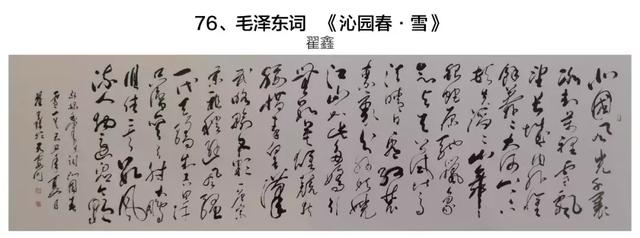 76、毛泽东词 《沁园春·雪》
翟鑫
北国风光千里
冰封万里雪飘
望长城内外惟
余莽莽大河上下
顿失滔滔山舞
银蛇原驰蜡象
欲与天公试比高
须晴日看红装
素裹分外妖娆
江山如此多娇引
无数英雄竞折
腰惜秦皇汉
武略输文采唐宗
宋祖稍逊风骚
一代天骄成吉思汗
只识弯弓射大雕
俱往矣数风
流人物还看今朝